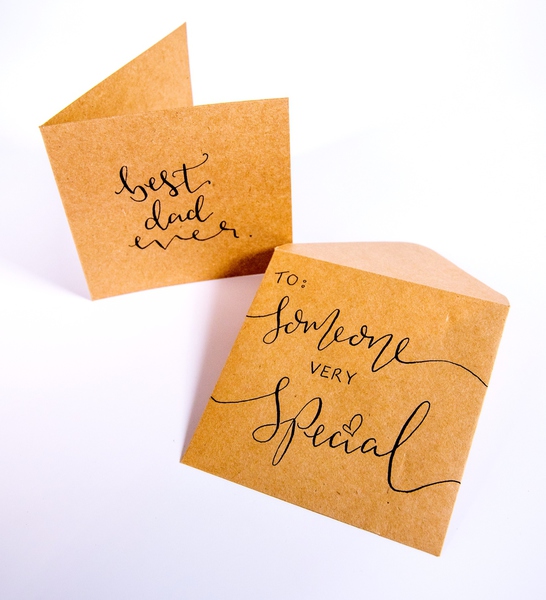 best
dad
ever.
TO:
Someone
VERY
Special